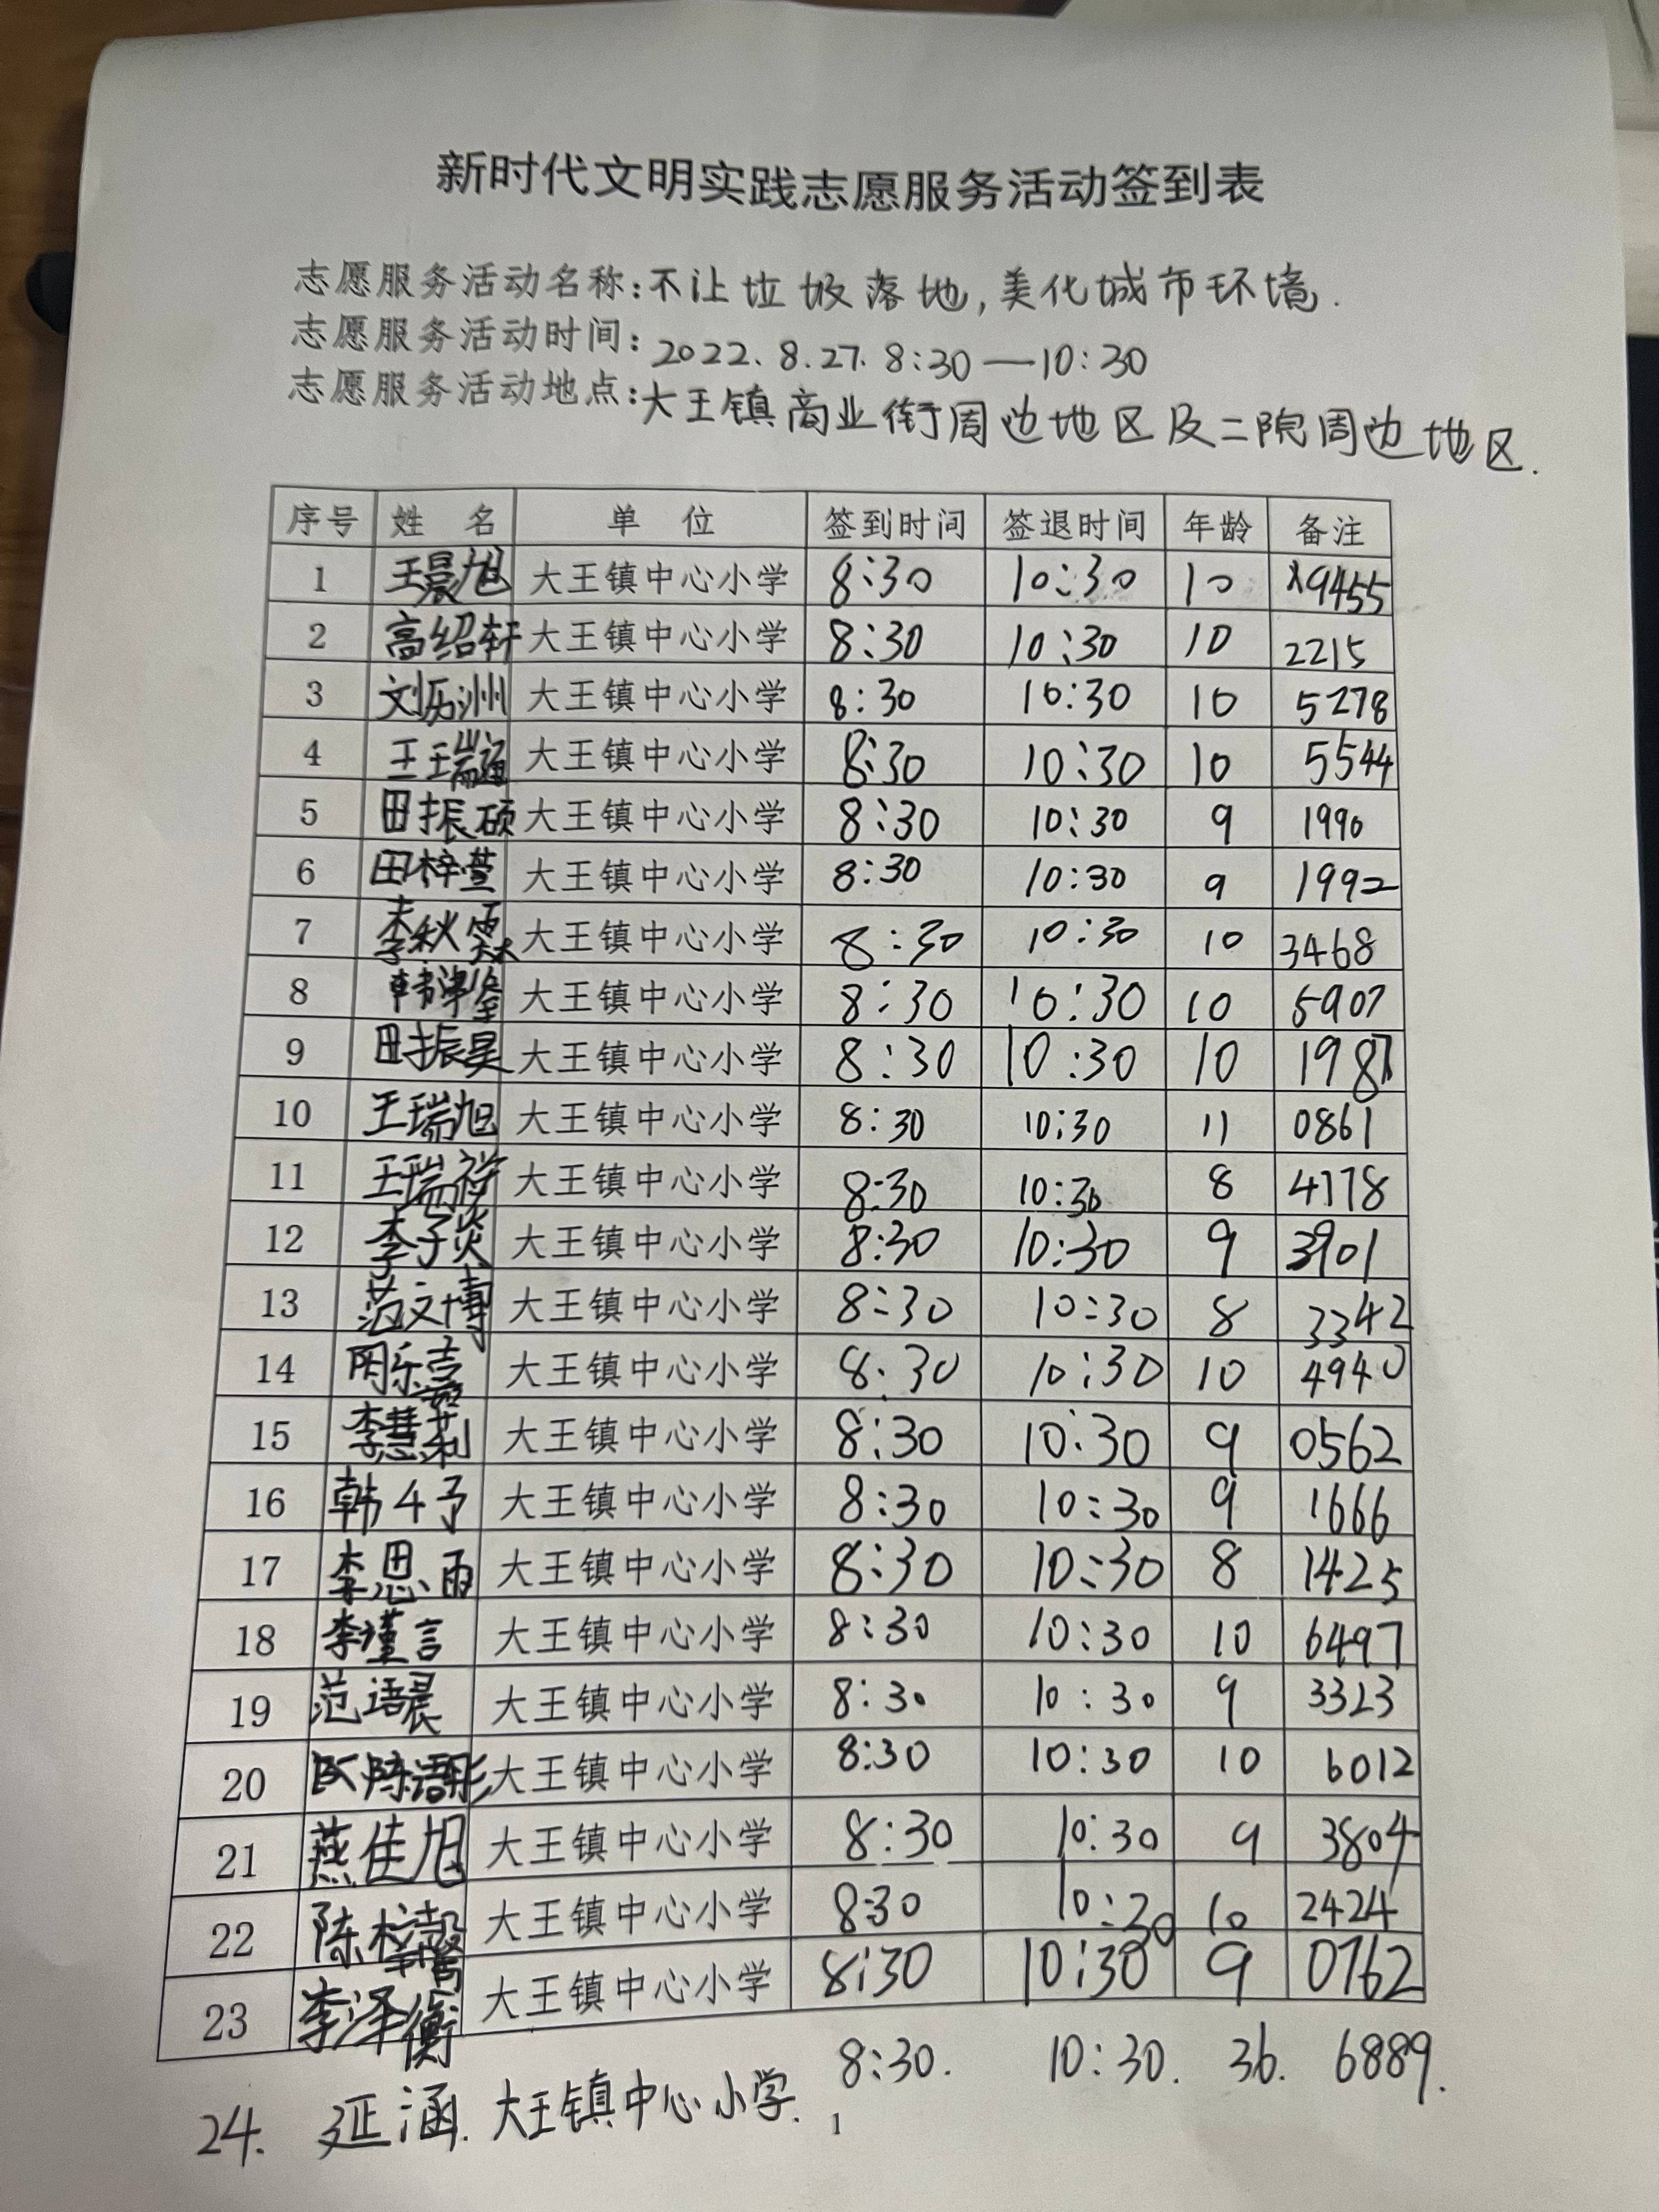 新时代文明实践志愿服务活动签到表
志愿服务活动名称:不让垃圾落地,美化城市环境.
志愿服务活动时间:2022.8.27.8:30—10:30
志愿服务活动地点:大王镇商业街周边地区及二院周边地区.
序号 姓 名 单 位 签到时间 签退时间 年龄 备注
1 王晨旭 大王镇中心小学 8:30 10:30 10 9455
2 高绍轩 大王镇中心小学 8:30 10:30 10 2215
3 刘历洲 大王镇中心小学 8:30 10:30 10 5278
4 王瑞涵 大王镇中心小学 8:30 10:30 10 5544
5 田振硕 大王镇中心小学 8:30 10:30 9 1990
6 田梓萱 大王镇中心小学 8:30 10:30 9 1992
7 李秋霖 大王镇中心小学 8:30 10:30 10 3468
8 大王镇中心小学 8:30 10:30 10 5907
9 田振昊 大王镇中心小学 8:30 10:30 10 1987
10 王瑞旭 大王镇中心小学 8:30 10:30 11 0861
11 王瑞祥 大王镇中心小学 8:30 10:30 8 4178
12 李子炎 大王镇中心小学 8:30 10:30 9 3901
13 范文博 大王镇中心小学 8:30 10:30 8 3342
14 大王镇中心小学 8:30 10:30 10 4940
15 李慧莉 大王镇中心小学 8:30 10:30 9 0562
16 韩 予 大王镇中心小学 8:30 10:30 9 1666
17 李思雨 大王镇中心小学 8:30 10:30 8 1425
18 李瑾言 大王镇中心小学 8:30 10:30 10 6497
19 范语晨 大王镇中心小学 8:30 10:30 9 3323
20 陈语彤 大王镇中心小学 8:30 10:30 10 6012
21 燕佳旭 大王镇中心小学 8:30 10:30 9 3804
22 陈梓馨 大王镇中心小学 8:30 10:30 10 2424
23 李泽衡 大王镇中心小学 8:30 10:30 9 0762
24. 延涵. 大王镇中心小学. 8:30. 10:30. 36. 6889.
1